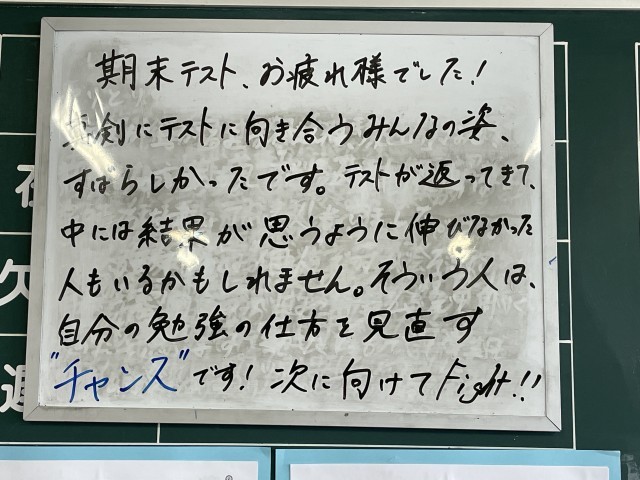 期末テスト、お疲れ様でした!
真剣にテストに向き合うみんなの姿、
すばらしかったです。テストが返ってきて、
中には結果が思うように伸びなかった
人もいるかもしれません。そういう人は、
自分の勉強の仕方を見直す
"チャンス"です!次に向けてFight!!